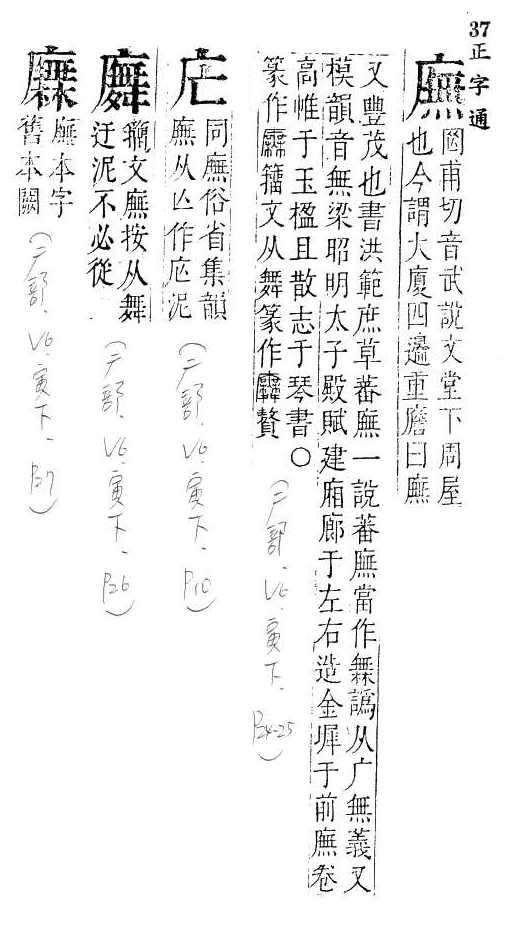 37正字通
廡
罔甫切音武說文堂下周屋
也今謂大廈四邊重簷曰廡
又豐茂也書洪範庶草蕃廡一說蕃廡當作橆譌从广無義又
模韻音無梁昭明太子殿賦建廂廊于左右造金墀于前廡卷
高帷于玉楹且散志于琴書○
篆作廡籀文从舞篆作廡贅
(广部、V6、寅下、P24-25)
㡆
同廡俗省集韻
廡从亾作㡆泥
(广部、V6、寅下、P10)
籀文廡按从舞
迂泥不必從
(广部、V6、寅下、P26)
廡本字
舊本闕
(广部、V6、寅下、P37)